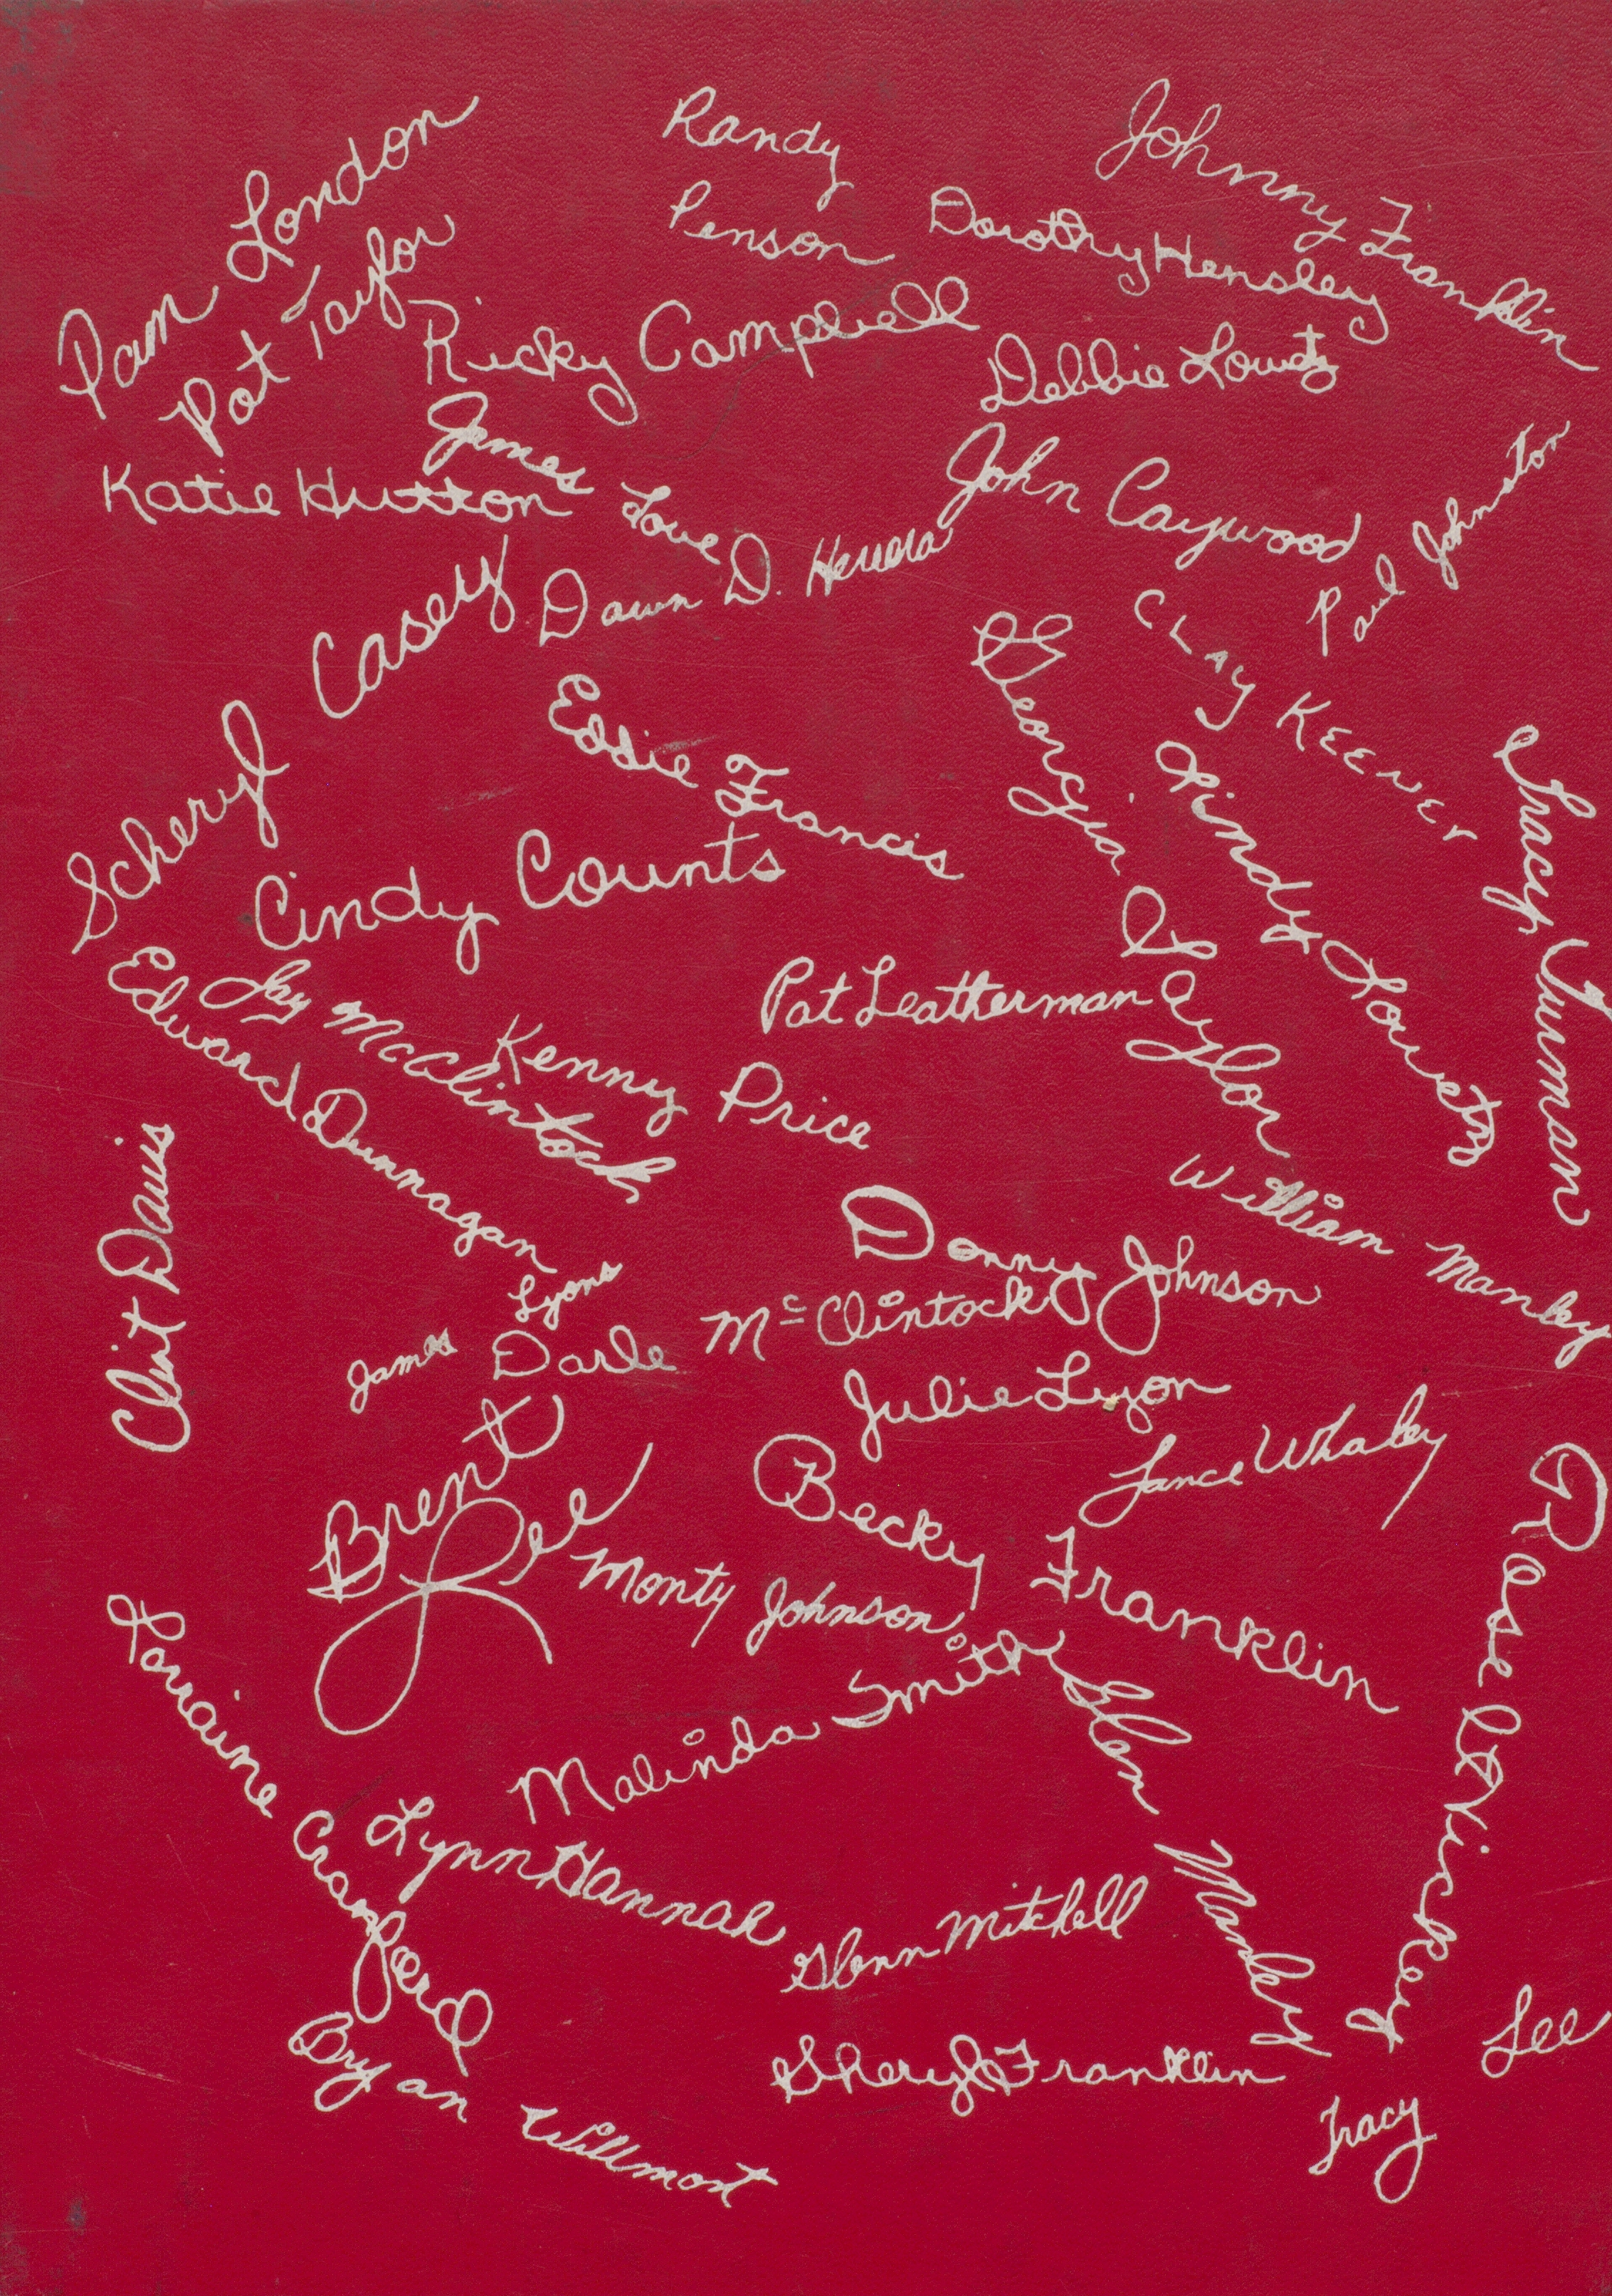 Pam London
Randy
Penson
Johnny Franklin
Dorothy Hensley
Pat Taylor
Ricky Campbell
Debbie Lowetz
James Love
Katie Hutton
John Caywood
Paul Johnston
Dawn D. Herrera
Scheryl Casey
Clay Keener
Georgia Taylor
Eddie Francis
Cindy Lowetz
Tracy Turman
Cindy Counts
Jay McClintock
Edward Dunnagan
Pat Leatherman
Kenny Price
Clint Davis
William Manley
Donny Johnson
James Lyons
Darle McClintock
Julie Lyon
Lance Whaley
Brent Lee
Becky Franklin
Monty Johnson
Rose Vickey
Lorraine Crawford
Malinda Smith
Glen Manley
Lynn Hannah
Glenn Mitchell
Bryan Willmont
Sheryl Franklin
Tracy Lee